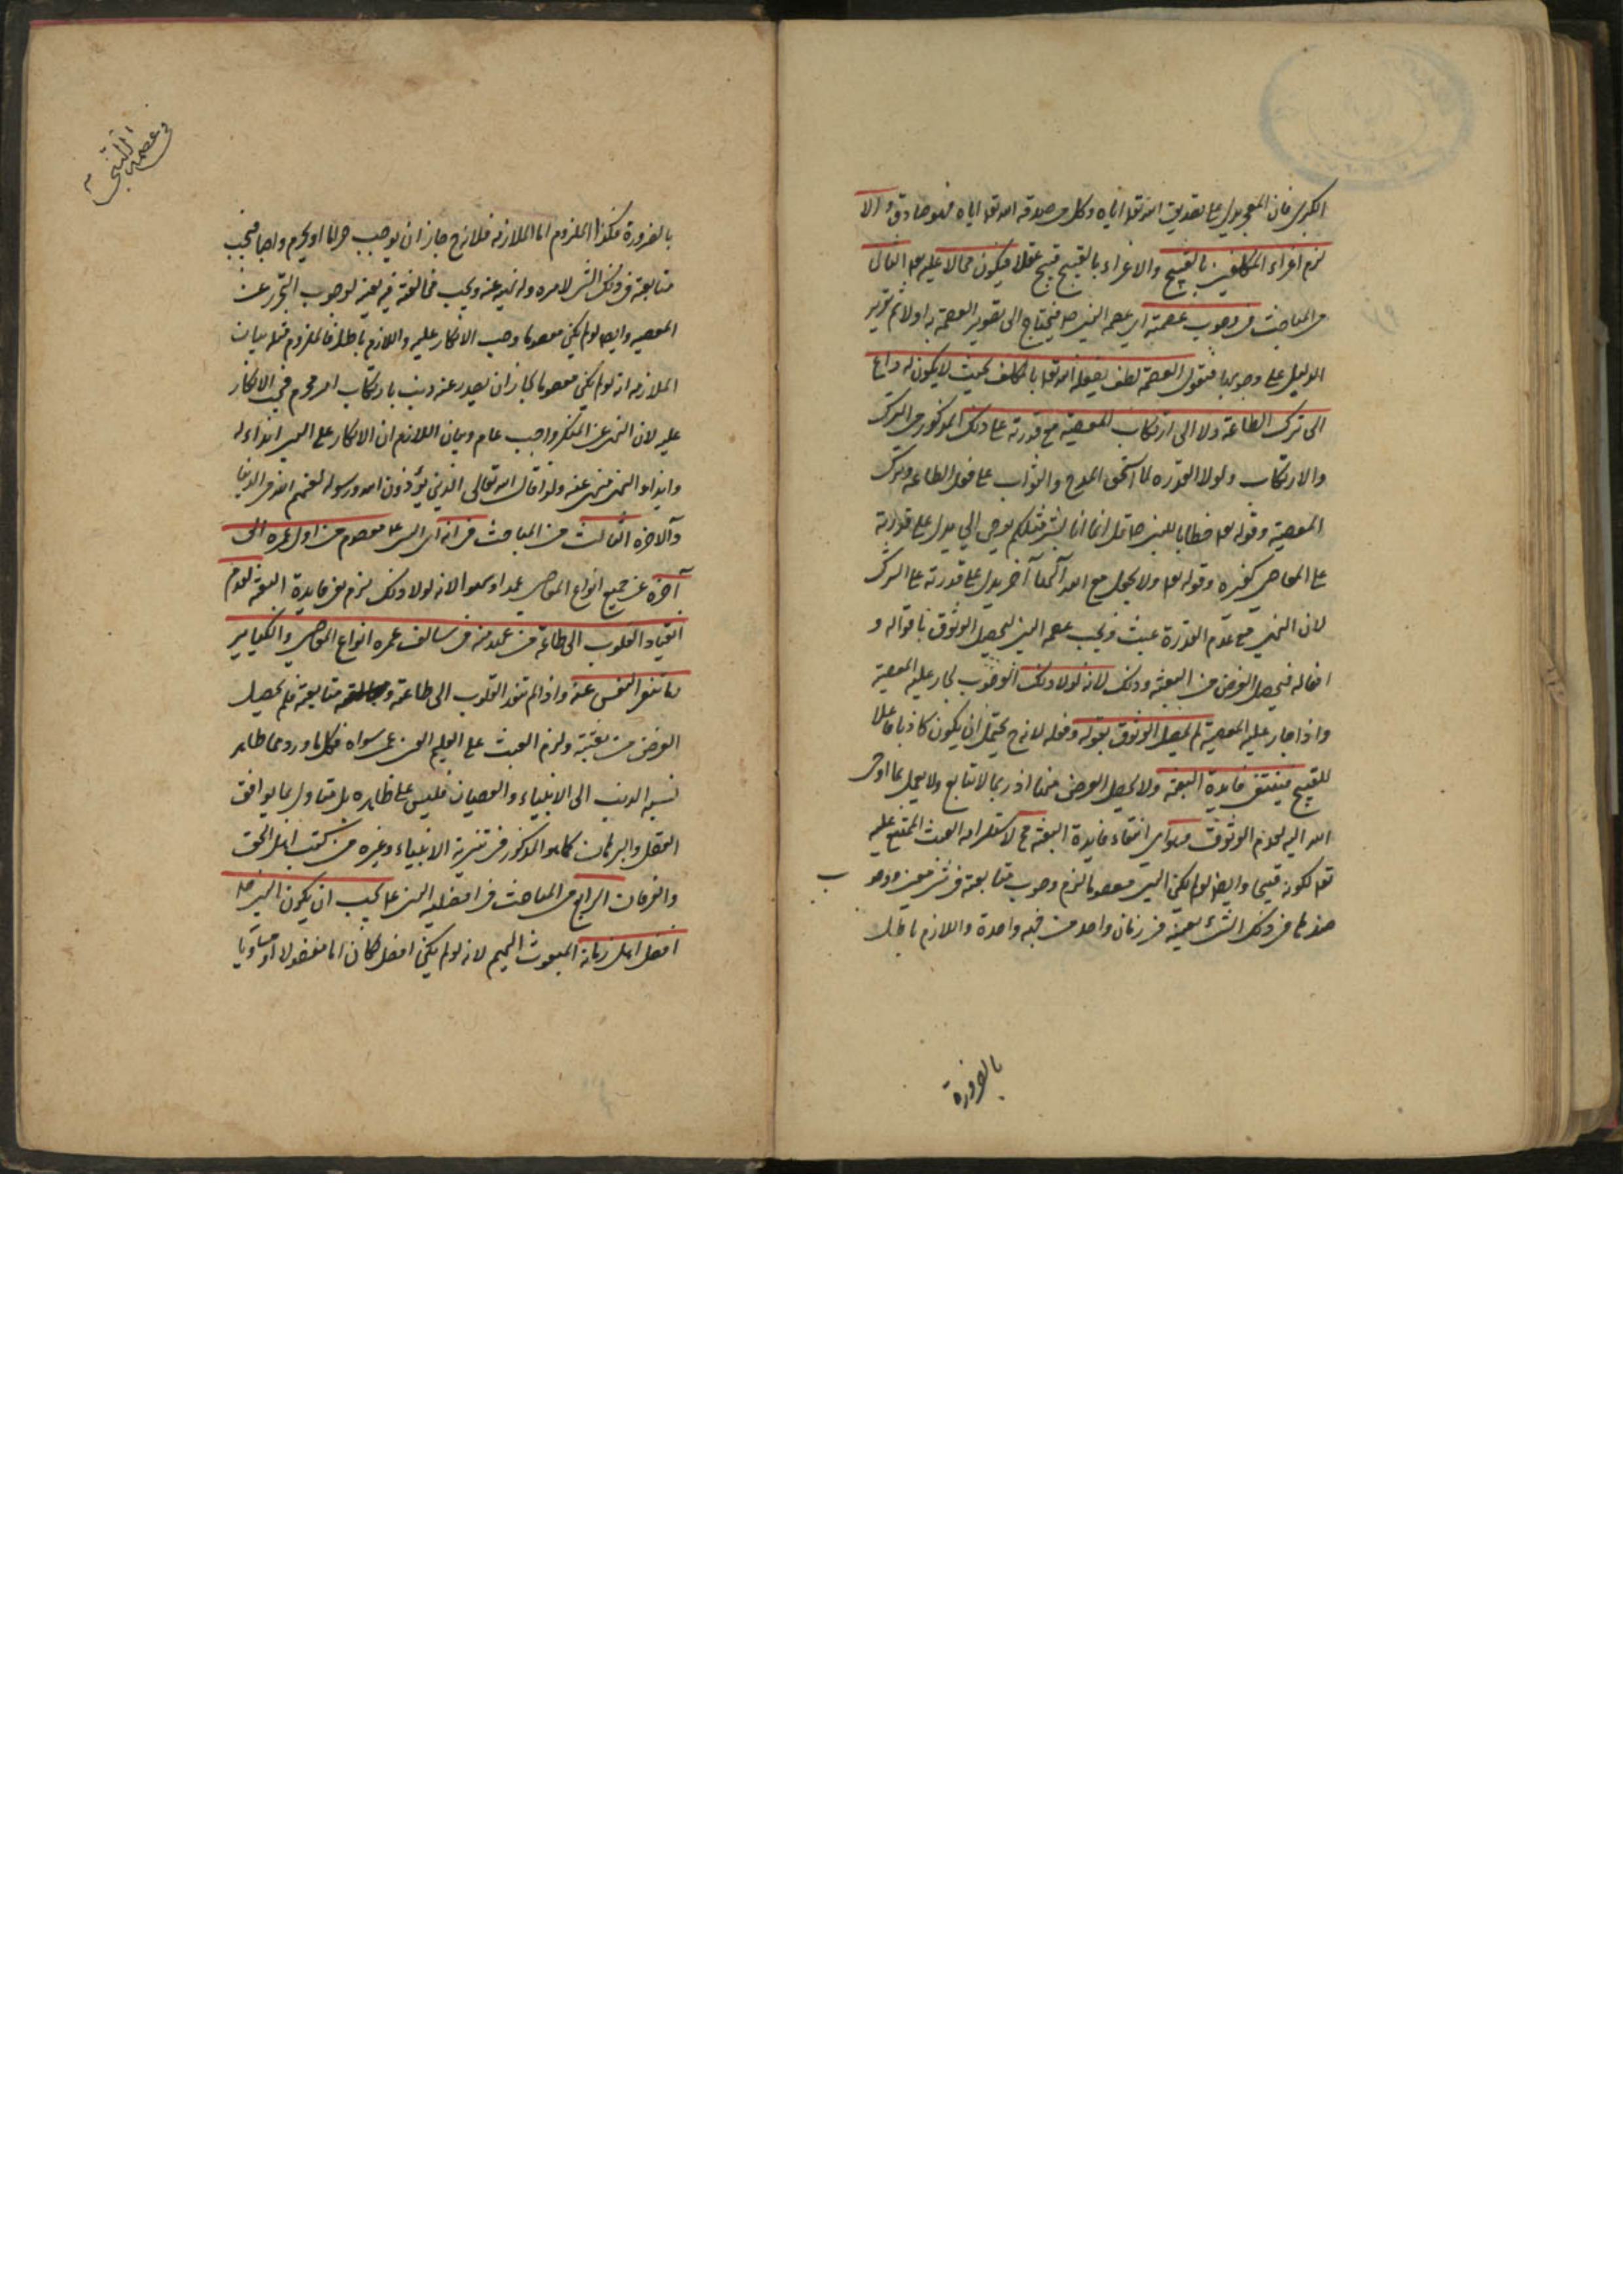 الكبرى فان المعجز يدل على تصديق الله تعا اياه وكل من صدقه الله تعا اياه فهو صادق والا
لزم اغراء المكلفين بالقبيح والاغراء بالقبيح قبيح عقلا فيكون محالا عليه تعا الثاني
من المباحث في وجوب عصمته اي عصمة النبي ص فيحتاج الى تصوير العصمة به اولا ثم تقرير
الدليل على وجوبها فنقول العصمة لطف يفعله الله تعا بالمكلف بحيث لا يكون له داع
الى ترك الطاعة ولا الى ارتكاب المعصية مع قدرته على ذلك المذكور من الترك
والارتكاب ولولا القدرة لما استحق المدح والثواب على فعل الطاعة وترك
المعصية وقوله تعا خطابا للنبي ص قل انما انا بشر مثلكم يوحى الي يدل على قدرته
على المعاصي كغيره وقوله تعا ولا تجعل مع الله آلها آخر يدل على قدرته على الشرك
لان النهي مع عدم القدرة عبث ويجب عصمة النبي ليحصل الوثوق باقواله و
افعاله فيحصل الغرض من البعثة وذلك لانه لولا ذلك الوجوب لجاز عليه المعصية
واذا جاز عليه المعصية لم يحصل الوثوق بقوله وفعله لانه ح يحتمل ان يكون كاذبا فاعلا
للقبيح فينتفي فايدة البعثة ولا يحصل الغرض منها اذ ربما لا تتابع ولا يعمل بما اوحى
الله اليه لعدم الوثوق وهو اي انتفاء فايدة البعثة مح لاستلزامه العبث الممتنع عليه
تعا لكونه قبيحا وايضا لو لم يكن النبي معصوما لزم وجوب متابعته في شئ معين ووجوب
ضدها في ذلك الشئ بعينه في زمان واحد من جهة واحدة واللازم باطل
بالضرورة
في عصمة النبي
بالضرورة فكذا الملزوم اما الملازمة فلانه ح جاز ان يوجب حراما او يحرم واجبا فيجب
متابعته في ذلك الشئ لامره ولنهيه عنه ويجب مخالفته فيه بعينه لوجوب التحرز عن
المعصية وايضا لو لم يكن معصوما وجب الانكار عليه واللازم باطل فالملزوم مثله بيان
الملازمة انه لو لم يكن معصوما لجاز ان يصدر عنه ذنب بارتكاب امر محرم فيجب الانكار
عليه لان النهي عن المنكر واجب عام وبيان اللازم ان الانكار على النبي ايذاء له
وايذاء النبي منهي عنه ولذا قال الله تعالى الذين يؤذون الله ورسوله لعنهم الله في الدنيا
والآخرة الثالث من المباحث في انه اي النبي ع معصوم من اول عمره الى
آخره عن جميع انواع المعاصي عمدا وسهوا لانه لولا ذلك لزم نفي فايدة البعثة لعدم
انقياد القلوب الى طاعة من عهد منه في سالف عمره انواع المعاصي والكباير
وما تنفر النفس عنه واذا لم تنقد القلوب الى طاعته ومتابعته فلم يحصل
الغرض من بعثته ولزم العبث على الحكيم الغني عن سواه فكل ما ورد مما ظاهر
نسبة الذنب الى الانبياء والعصيان فليس على ظاهره بل متاول بما يوافق
العقل والبرهان كما هو المذكور في تنزيه الانبياء وغيره من كتب اهل الحق
والعرفان الرابع من المباحث في افضلية النبي ع يجب ان يكون النبي ص
افضل اهل زمانه المبعوث اليهم لانه لو لم يكن افضل لكان اما مفضولا او مساويا